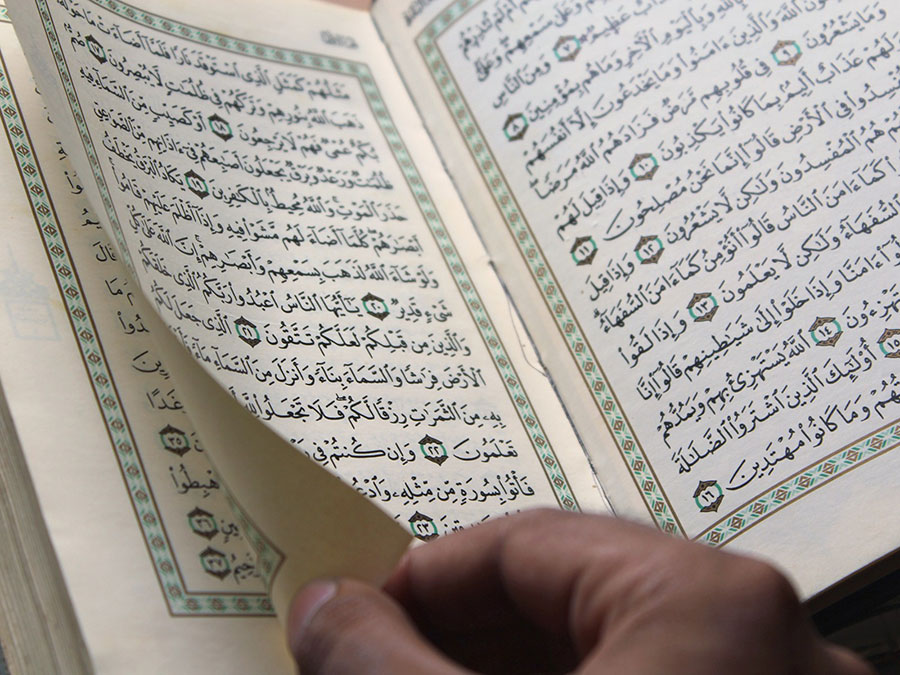 أَمْ لَمْ تُنذِرْهُمْ
وَعَلَىٰ سَمْعِهِمْ وَعَلَىٰ
عَذَابٌ عَظِيمٌ ٧ وَمِنَ النَّاسِ
بِاللَّهِ وَبِالْيَوْمِ الْآخِرِ وَمَا هُم بِمُؤْمِنِينَ ٨
اللَّهَ وَالَّذِينَ ءَامَنُوا وَمَا يَخْدَعُونَ إِلَّا أَنفُسَهُمْ
وَمَا يَشْعُرُونَ ٩ فِي قُلُوبِهِم مَّرَضٌ فَزَادَهُمُ اللَّهُ مَرَضًا
وَلَهُمْ عَذَابٌ أَلِيمٌ بِمَا كَانُوا يَكْذِبُونَ ١٠ وَإِذَا قِيلَ لَهُمْ
تُفْسِدُوا فِي الْأَرْضِ قَالُوا إِنَّمَا نَحْنُ مُصْلِحُونَ ١١
هُمُ الْمُفْسِدُونَ وَلَٰكِن لَّا يَشْعُرُونَ ١٢ وَإِذَا قِيلَ
كَمَا ءَامَنَ النَّاسُ قَالُوا أَنُؤْمِنُ كَمَا ءَامَنَ السُّفَهَاءُ
السُّفَهَاءُ وَلَٰكِن لَّا يَعْلَمُونَ ١٣ وَإِذَا لَقُوا
ءَامَنَّا وَإِذَا خَلَوْا إِلَىٰ شَيَٰطِينِهِمْ قَالُوا إِنَّا
١٤ اللَّهُ يَسْتَهْزِئُ بِهِمْ وَيَمُدُّهُمْ
١٥ أُولَٰئِكَ الَّذِينَ اشْتَرَوُا الضَّلَٰلَةَ
وَمَا كَانُوا مُهْتَدِينَ ١٦
مَثَلُهُمْ كَمَثَلِ الَّذِي اسْتَوْقَدَ نَارًا فَلَمَّا أَضَاءَتْ مَا حَوْلَهُ
ذَهَبَ اللَّهُ بِنُورِهِمْ وَتَرَكَهُمْ فِي ظُلُمَٰتٍ لَّا يُبْصِرُونَ ١٧ صُمٌّ
بُكْمٌ عُمْيٌ فَهُمْ لَا يَرْجِعُونَ ١٨ أَوْ كَصَيِّبٍ مِّنَ السَّمَاءِ فِيهِ
ظُلُمَٰتٌ وَرَعْدٌ وَبَرْقٌ يَجْعَلُونَ أَصَٰبِعَهُمْ فِي ءَاذَانِهِم مِّنَ الصَّوَٰعِقِ
حَذَرَ الْمَوْتِ وَاللَّهُ مُحِيطٌ بِالْكَٰفِرِينَ ١٩ يَكَادُ الْبَرْقُ يَخْطَفُ
أَبْصَٰرَهُمْ كُلَّمَا أَضَاءَ لَهُم مَّشَوْا فِيهِ وَإِذَا أَظْلَمَ عَلَيْهِمْ قَامُوا
وَلَوْ شَاءَ اللَّهُ لَذَهَبَ بِسَمْعِهِمْ وَأَبْصَٰرِهِمْ إِنَّ اللَّهَ عَلَىٰ كُلِّ
شَيْءٍ قَدِيرٌ ٢٠ يَٰأَيُّهَا النَّاسُ اعْبُدُوا رَبَّكُمُ الَّذِي خَلَقَكُمْ
وَالَّذِينَ مِن قَبْلِكُمْ لَعَلَّكُمْ تَتَّقُونَ ٢١ الَّذِي جَعَلَ لَكُمُ
الْأَرْضَ فِرَٰشًا وَالسَّمَاءَ بِنَاءً وَأَنزَلَ مِنَ السَّمَاءِ مَاءً
بِهِ مِنَ الثَّمَرَٰتِ رِزْقًا لَّكُمْ فَلَا تَجْعَلُوا لِلَّهِ
تَعْلَمُونَ ٢٢ وَإِن كُنتُمْ فِي
فَأْتُوا بِسُورَةٍ مِّن مِّثْلِهِ وَادْعُوا
٢٣
قَالَ
رَغَدًا
٣٥
اهْبِطُوا
٣٦
٣٧